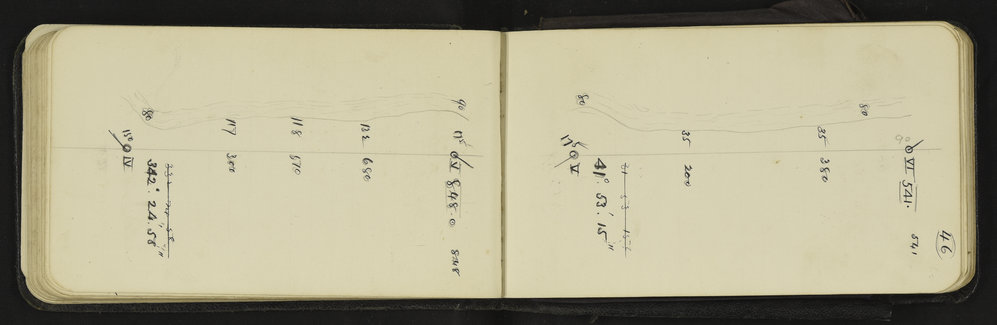 46
⊙ VI 541. 541
90
80
35 380
35 200
80
⊙ V
41° 53' 15"
⊙ V 848.0 848
90
132 680
118 570
117 300
80
⊙ IV
342° 24' 58"